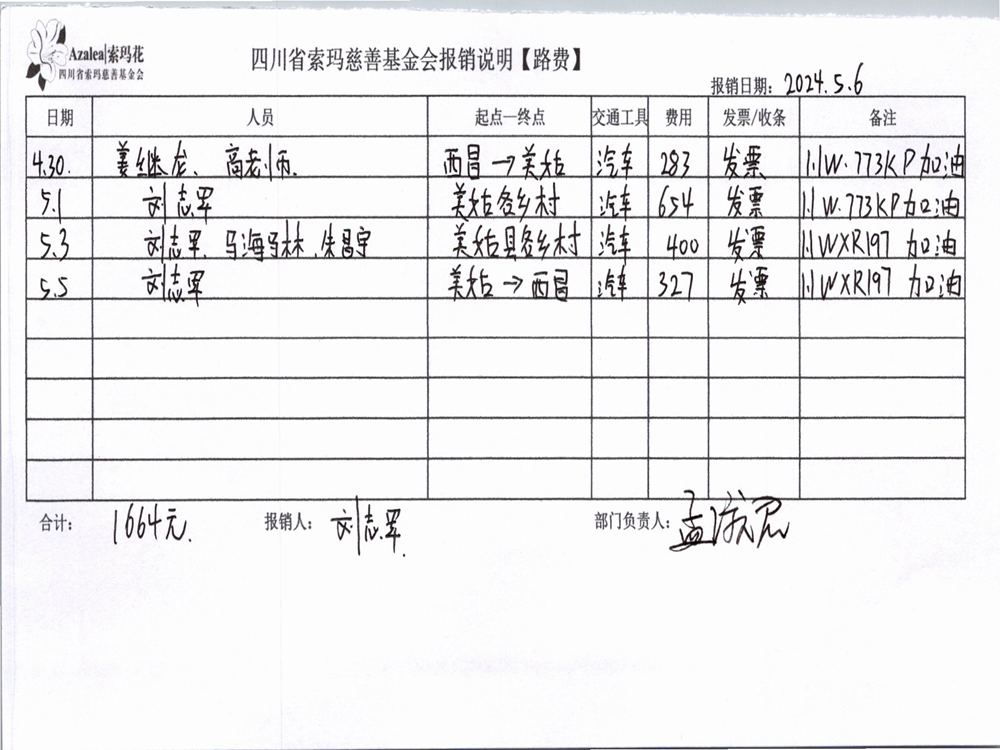 Azalea|索玛花
四川省索玛慈善基金会
四川省索玛慈善基金会报销说明【路费】
报销日期: 2024.5.6
日期 人员 起点—终点 交通工具 费用 发票/收条 备注
4.30. 姜继龙、高老师. 西昌→美姑 汽车 283 发票 川W·773KP加油
5.1 刘志军 美姑各乡村 汽车 654 发票 川W·773KP加油
5.3 刘志军、马海马林、朱昌宇 美姑县各乡村 汽车 400 发票 川WXR197 加油
5.5 刘志军 美姑→西昌 汽车 327 发票 川WXR197 加油
合计: 1664元. 报销人: 刘志军. 部门负责人: 孟